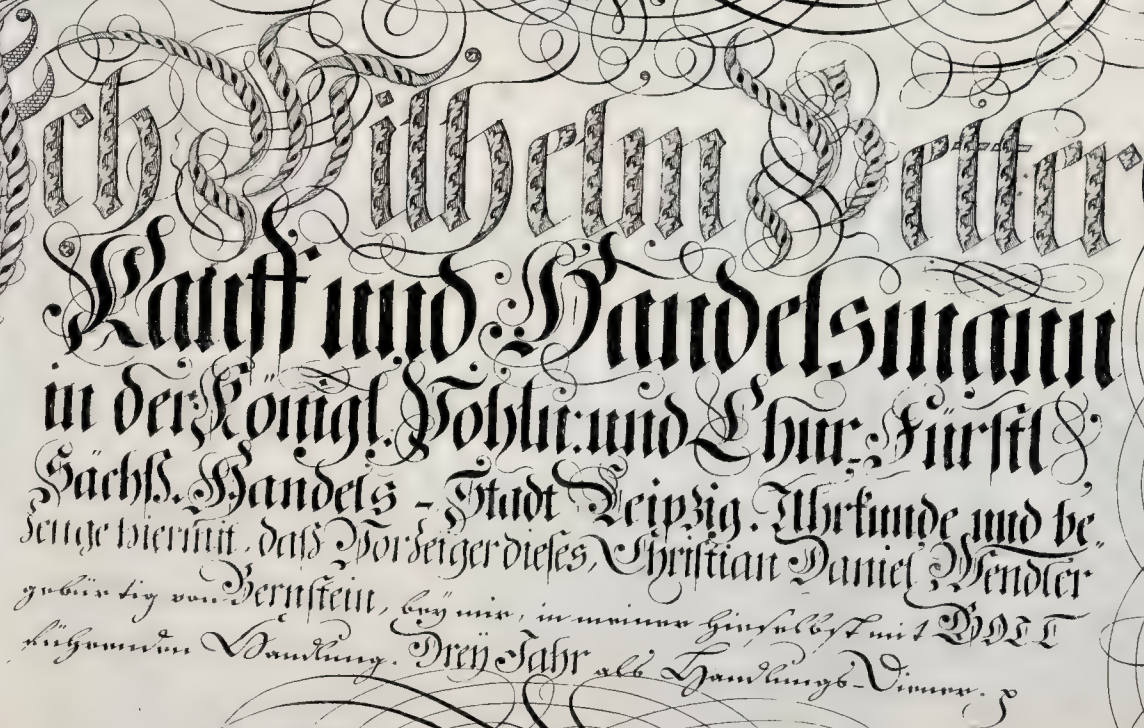 Ich Wilhelm Vetter
Kauff und Handelsmann
in der Königl. Pohln: und Chur-Fürstl
Sächß. Handels-Stadt Leipzig. Uhrkunde und be-
zeuge hiermit, daß Vorzeiger dieses, Christian Daniel Wendler
gebürtig von Bernstein, bey mir, in meiner hieselbst mit GOTT
führenden Handlung. Drey Jahr als Handlungs-Diener.